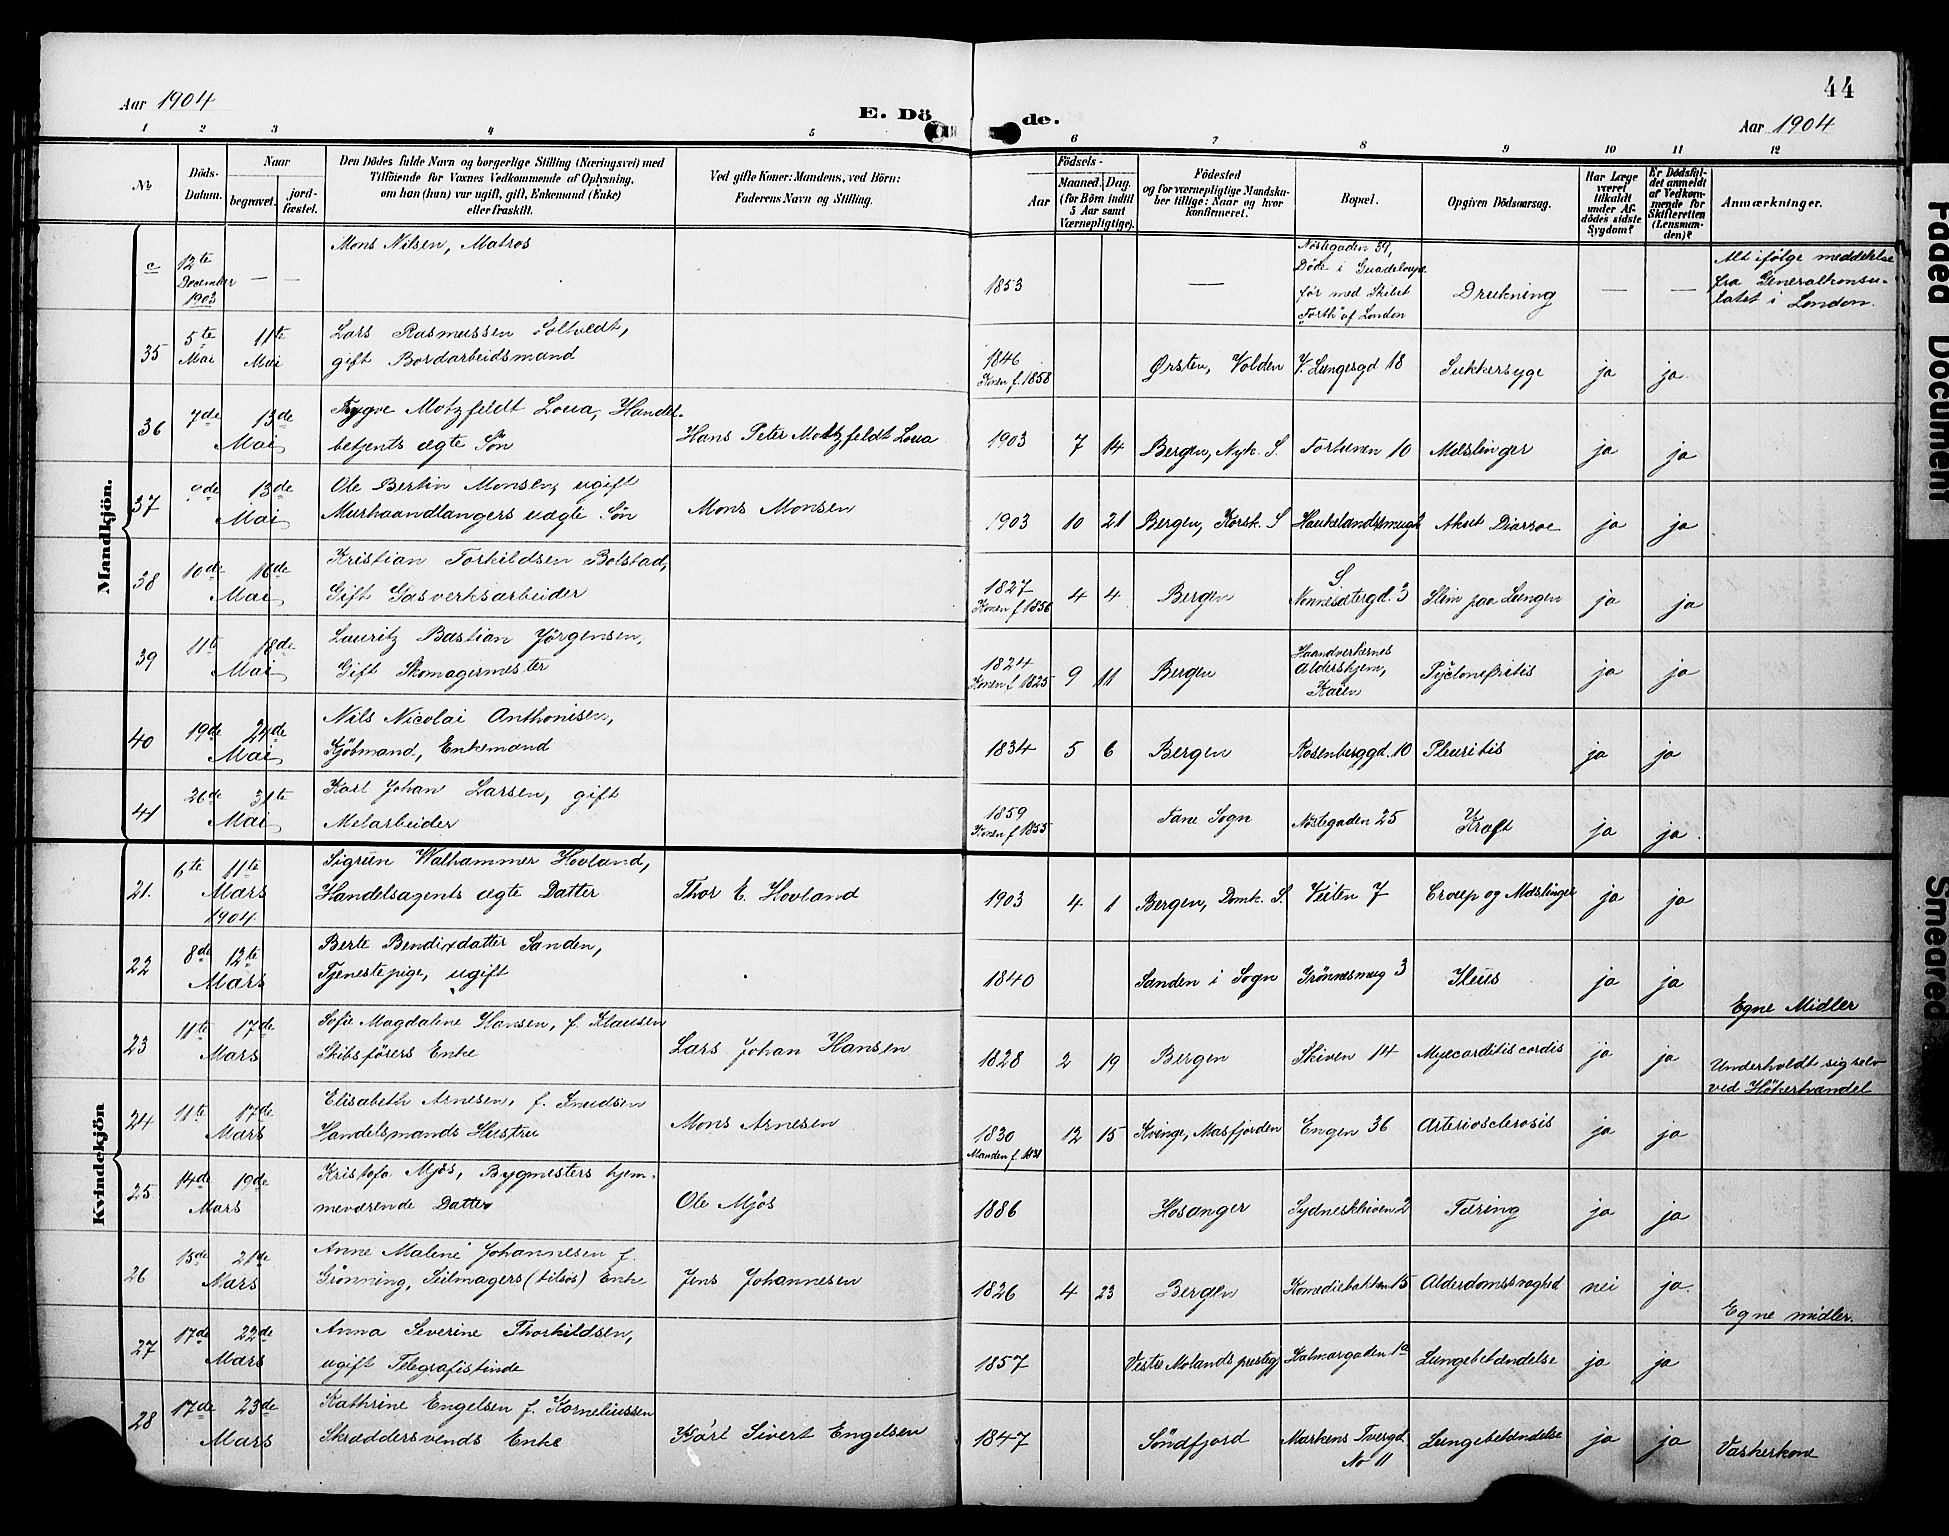 44
Aar 1904
E. Dö de.
Aar 1904
1 2 3 4 5 6 7 8 9 10 11 12
No
Döds-Datum.
Naar
begravet.
jord-fæstet.
Den Dödes fulde Navn og borgerlige Stilling (Næringsvei) med
Tilföiende for Voxnes Vedkommende af Oplysning,
om han (hun) var ugift, gift, Enkemand (Enke)
eller fraskilt.
Ved gifte Koner: Mandens, ved Börn:
Faderens Navn og Stilling.
Födsels-
Aar
Maaned. Dag.
(for Börn indtil
5 Aar samt
Værnepligtige).
Födested
og for værnepligtige Mandska-
ber tillige: Naar og hvor
konfirmeret.
Bopæl.
Opgiven Dödsaarsag.
Har Læge
været
tilkaldt
under Af-
dödes sidste
Sygdom?
Er Dödsfal-
det anmeldt
af Vedkom-
mende for
Skifteretten
(Lensman-
den)?
Anmærkninger.
Mandkjön.
c 12te December 1903 — — Mons Nilsen, Matros
1853 — Nöstegaden 39,
Döde i Guadeloupe
för med Skibet
"Forth" af London
Drukning — —
Alt ifölge meddelelse
fra Generalkonsu-
latet i London.
35 5te Mai 11te Mai Lars Rasmussen Soltvedt,
gift Bordarbeidsmand
1846
Konen f. 1858 Ørsten, Volden V. Lungesgd 18 Sukkersyge ja ja
36 7de 13de Mai Trygve Motzfeldt Loua, Handel-
betjents ægte Sön Hans Peter Motzfeldt Loua
1903 7 14 Bergen, Nyk. S. Fortunen 10 Meslinger ja ja
37 9de 13de Mai Ole Bertin Monsen, ugift
Murhaandlangers uægte Sön Mons Monsen
1903 10 21 Bergen, Korsk. S Haukelandsmug 2 Akut Diarroe ja ja
38 10de 16de Mai Kristian Torkildsen Bolstad,
Gift Gasverksarbeider
1827
Konen f. 1856 4 4 Bergen S.
Nonnesætergd. 3 Slim paa Lungen ja ja
39 11te 18de Mai Lauritz Bastian Jörgensen,
Gift Skomagermester
1824
Konen f. 1825 9 11 Bergen Haandverkernes
Aldershjem,
Kaien Pyelonefritis ja ja
40 19de 24de Mai Nils Nicolai Anthonisen,
Kjöbmand, Enkemand
1834 5 6 Bergen Rosenberggd. 10 Pleuritis ja ja
41 26de 31te Mai Karl Johan Larsen, gift
Melarbeider
1859
Konen f. 1855 Fane Sogn Nöstegaden 25 Kræft ja ja.
Kvindekjön
21. 6te 11te Mars 1904. Sigrun Walhammer Hovland,
Handelsagents ægte Datter Thor E. Hovland
1903 4 1 Bergen, Domk. S. Veiten 7 Croup og Mæslinger ja ja
22 8de 12te Mars Berte Bendixdatter Sanden,
Tjenestepige, ugift
1840 Sanden i Sogn Grönnesmug 3 Ileus ja ja
Egne Midler
23 11te 17de Mars Sofie Magdalene Hansen, f. Klausen
Skibsförers Enke Lars Johan Hansen
1828 2 19 Bergen Skiven 14 Myocarditis cordis ja ja
Underholdt sig selv
ved Hökerhandel
24 11te 17de Mars Elisabeth Arnesen, f. Knudsen
Handelsmands Hustru Mons Arnesen
1830
Manden f. 1831 12 15 Kvinge, Masfjorden Engen 36 Arteriosclerosis ja ja
25 14de 19de Mars Kristofa Mjös, Bygmesters hjem-
meværende Datter Ole Mjös
1886 Hosanger Sydneskleven 2 Tæring ja ja
26 15de 21de Mars Anne Malene Johannesen f.
Grönning, Seilmagers (tilsös) Enke Jens Johannesen
1826 4 23 Bergen Komediebakken 15 Alderdomssvaghed nei ja.
Egne midler.
27 17de 22de Mars Anna Severine Thorkildsen,
ugift Telegrafistinde
1857 Vestre Molands præsteg. Kalmargaden 1a Lungebetændelse ja ja
28 17de 23de Mars Kathrine Engelsen f. Korneliussen
Skræddersvends Enke Karl Sivert Engelsen
1847 Söndfjord Markens Tvergd.
No 11 Lungebetændelse ja ja Vaskerkone
Faded Document
Smeared